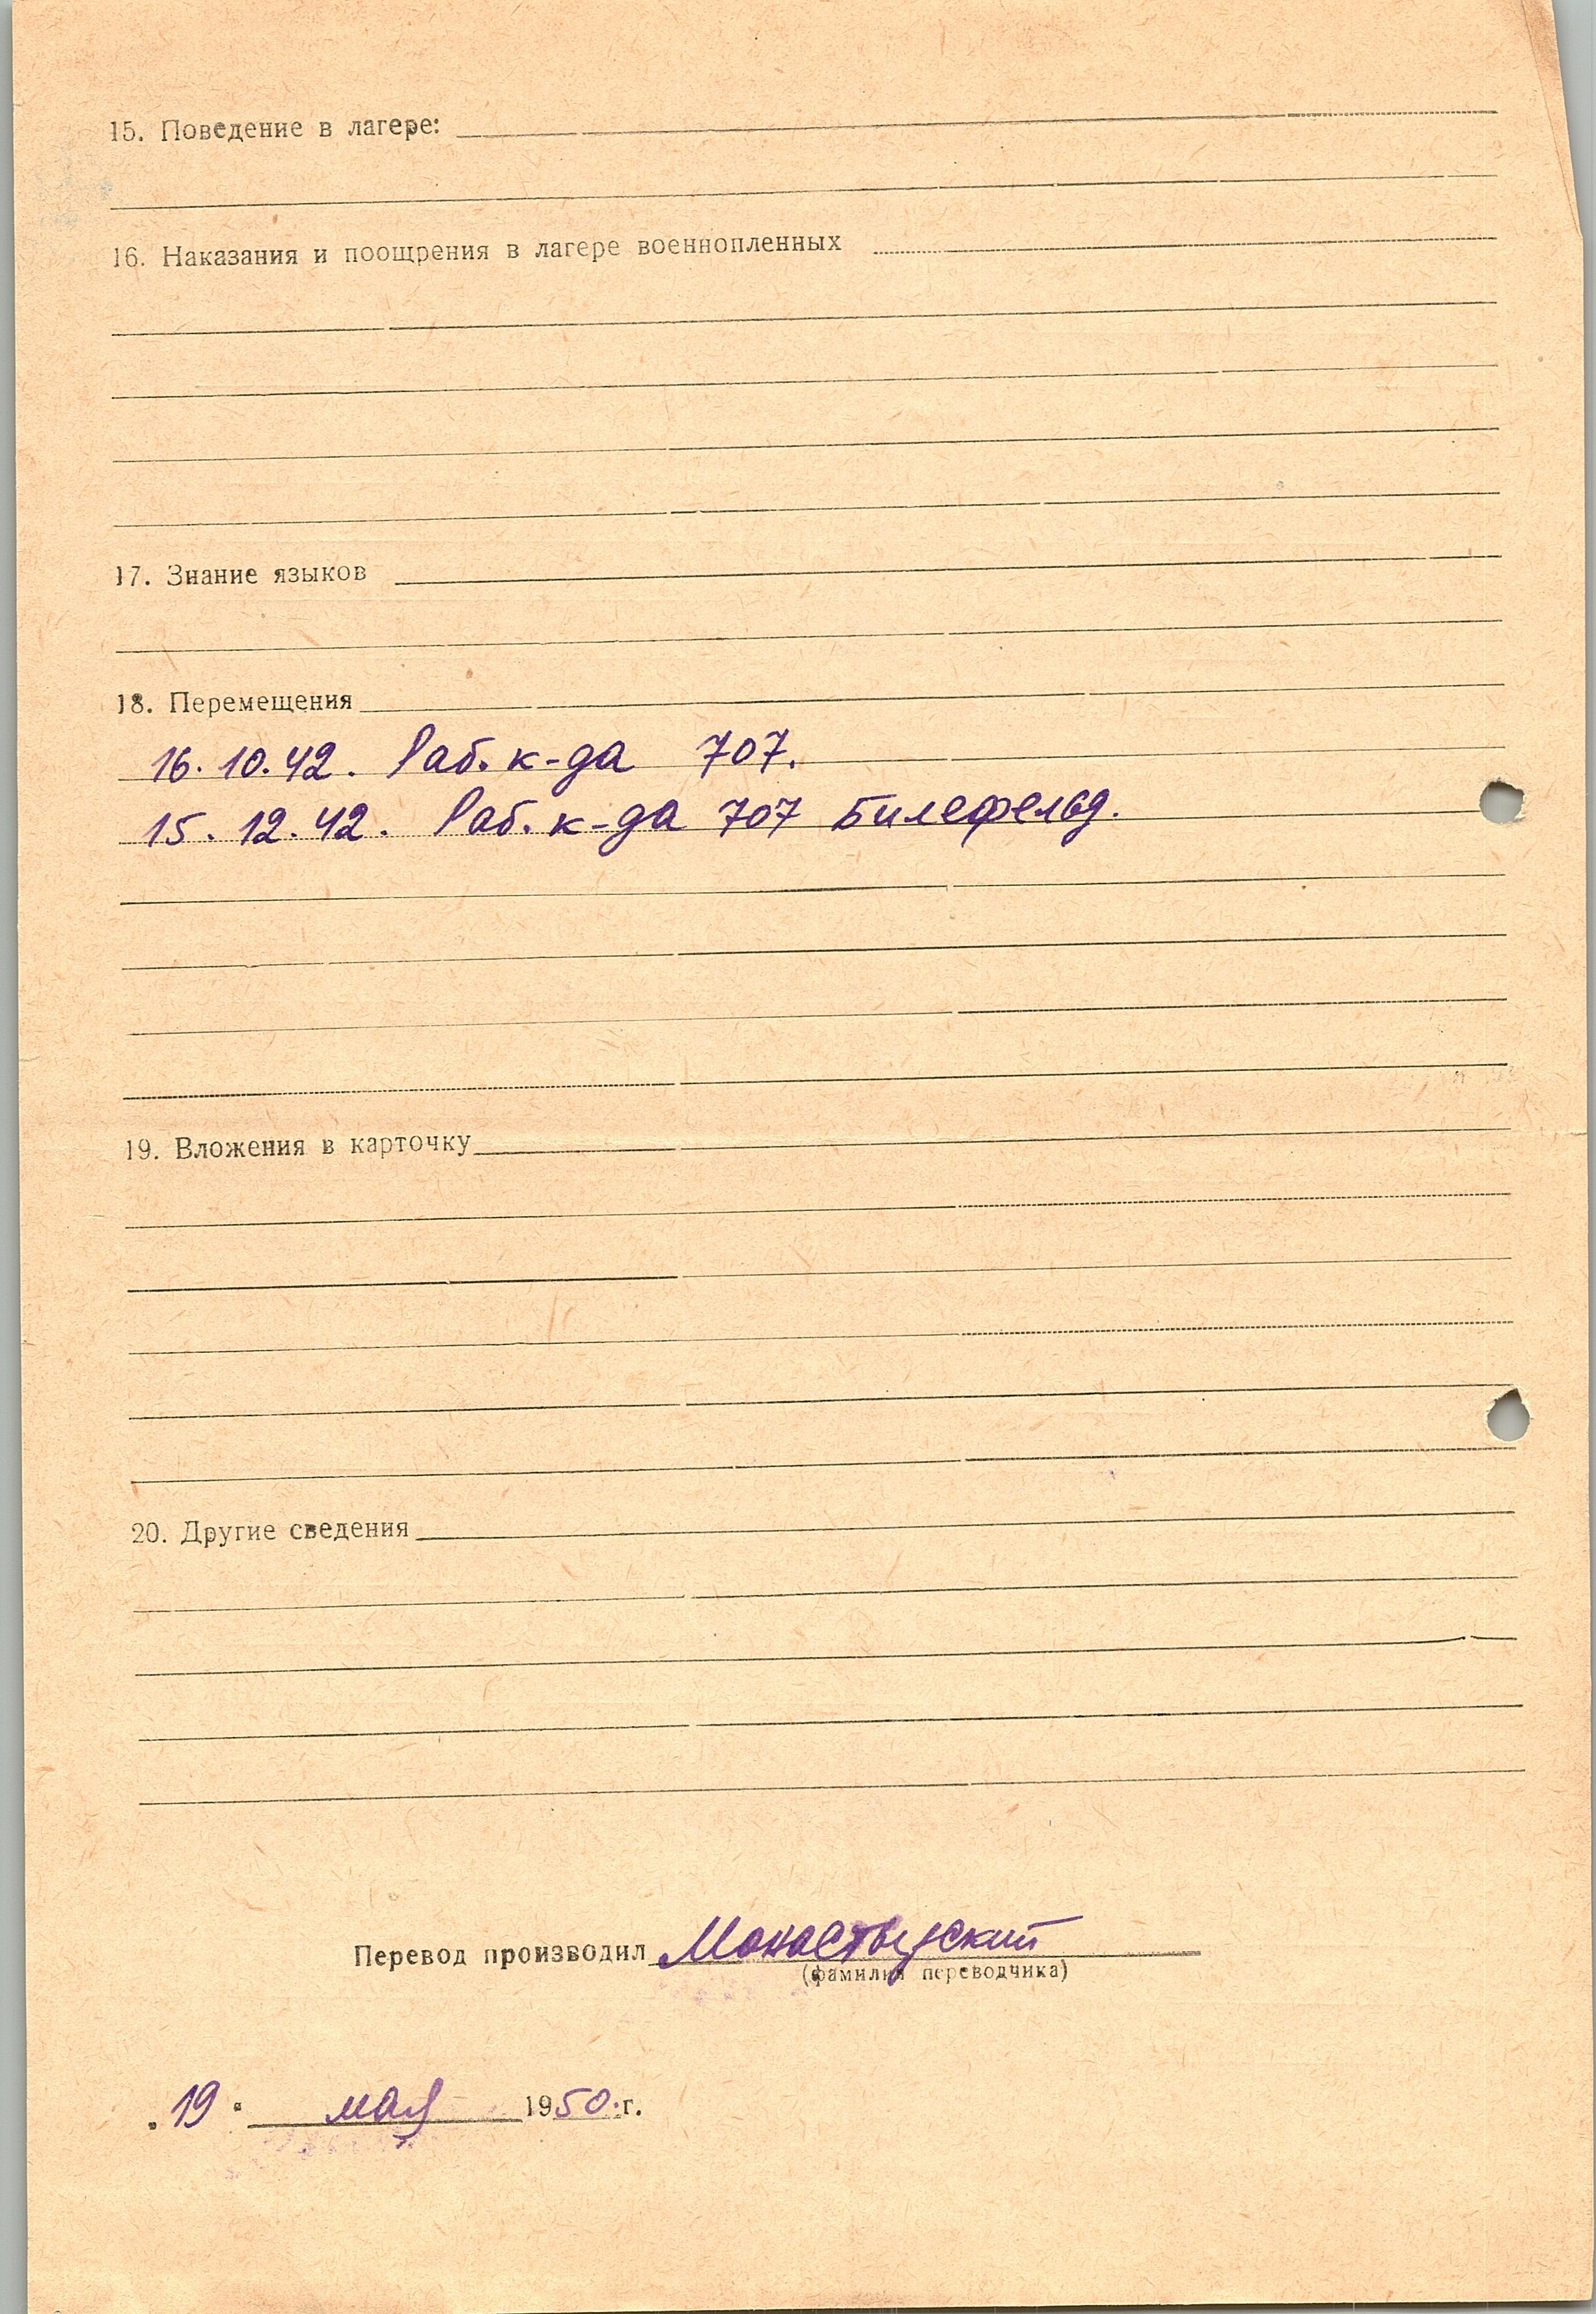 15. Поведение в лагере:
16. Наказания и поощрения в лагере военнопленных
17. Знание языков
18. Перемещения
16.10.42. Раб. к-да 707.
15.12.42. Раб. к-да 707 Билефельд.
19. Вложения в карточку
20. Другие сведения
Перевод производил Монастырский
(фамилия переводчика)
"19" мая 1950 г.